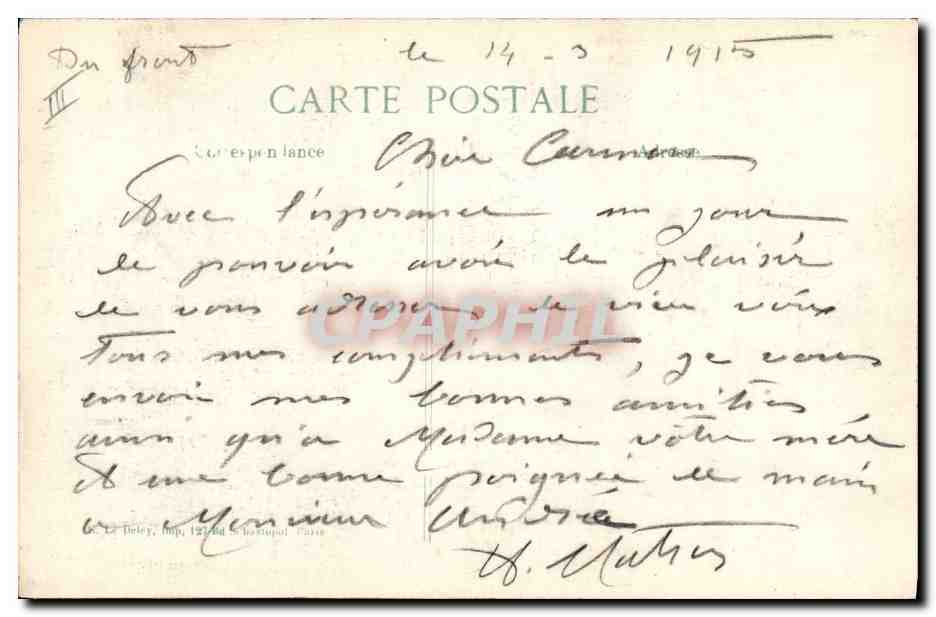 Du front le 14-3 1915
III
CARTE POSTALE
Correspondance Adresse
Chère
Avec l'espérance un jour
de pouvoir avoir le plaisir
de vous adresser de vive voix
Tous mes compliments, je vous
envoie mes bonnes amitiés
ainsi qu'a Madame votre mère
et une bonne poignée de main
a Monsieur André
CPAPHIL
Le Deley, Imp, 127 Bd Sébastopol Paris